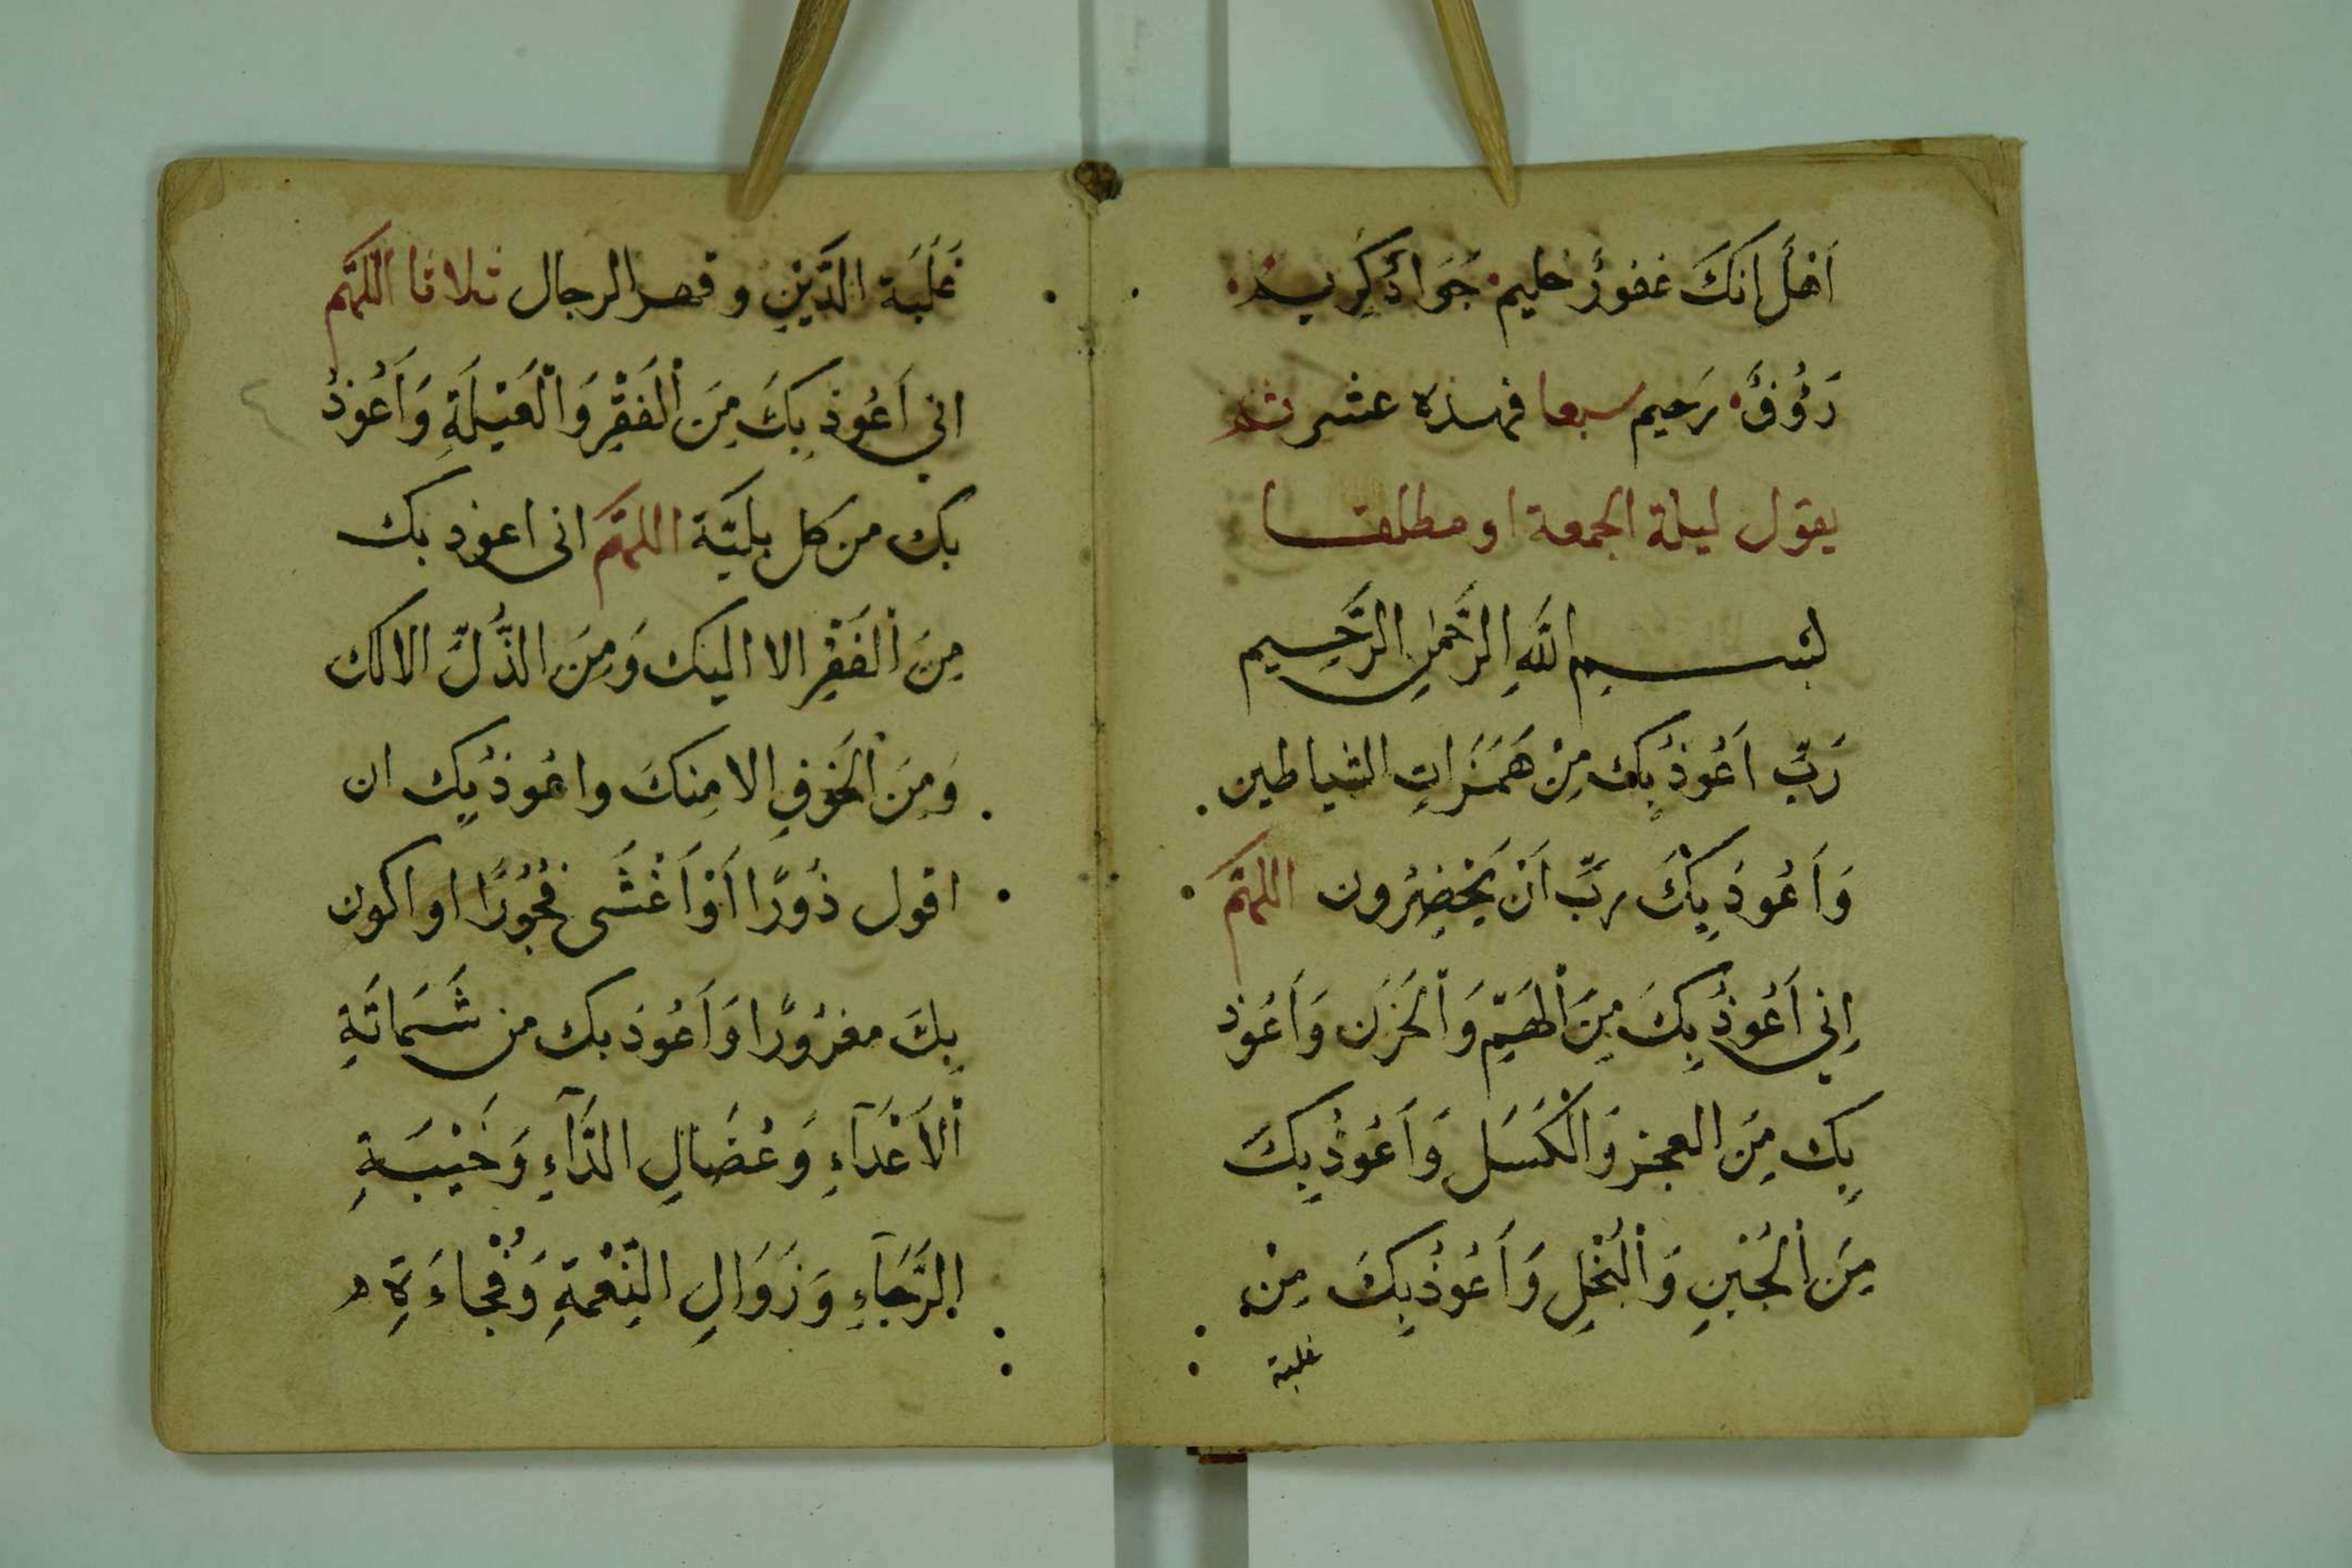 اَهْلٌ إنكَ غفورٌ حليم جَوَادٌ كَرِيم
رَؤُفٌ رَحيم سبعا فهذه عشر ثم
يقول ليلة الجمعة او مطلقا
بسم اللهِ الرَّحمٰنِ الرَّحِيم
رَبِّ اَعُوذُ بِكَ مِنْ هَمَزَاتِ الشياطين
وَاَعُوذُ بِكَ رَبِّ اَنْ يَحْضِرُون اللهمَّ
اِنِي اَعُوذُ بِكَ مِنَ الْهَمِّ وَالْحَزَن وَاَعُوذ
بِكَ مِنَ العجز وَالْكَسَل وَاَعُوذُ بِكَ
مِنَ الْجُبْنِ وَالْبُخْلِ وَاَعُوذُ بِكَ مِنْ
غلبة
غَلَبَة الدَّيْنِ و قهر الرجال ثلاثا اللهمَّ
اني اَعُوذ بِكَ مِنَ الْفَقْرِ وَالْعَيْلَةِ وَاَعُوذُ
بك من كل بليَّة اللهمَّ انى اعوذ بك
مِنَ الْفَقْرِ الا اليك وَمِنَ الذُّلِّ الا لك
وَمِنَ الْخَوفِ الا مِنكَ واعُوذُ بِك ان
اقول زُورًا اَوْ اَغْشَى فُجُورًا او اكون
بِكَ مغرُورًا وَاَعُوذ بك من شَمَاتَةِ
الْاَعْدَآءِ وَعُضَالِ الدَّآءِ وَخَيْبَةِ
الرَّجَآءِ وَزَوَالِ النِّعْمَةِ وَفُجْاءَةِ
٤